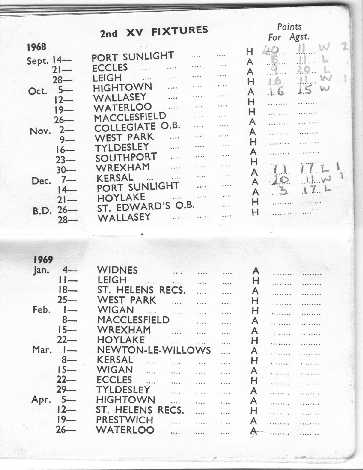 2nd XV FIXTURES
Points
1968 For Agst.
Sept. 14— PORT SUNLIGHT H 20 11 W 2
21— ECCLES A 11 L
28— LEIGH A 20 L
Oct. 5— HIGHTOWN H 16 11 W 1
12— WALLASEY A 16 15 W
19— WATERLOO H
26— MACCLESFIELD H
Nov. 2— COLLEGIATE O.B. A
9— WEST PARK A
16— TYLDESLEY H
23— SOUTHPORT A
30— WREXHAM H
Dec. 7— KERSAL A 11 17 L 1
14— PORT SUNLIGHT A 20 11 W 1
21— HOYLAKE A 3 17 L
B.D. 26— ST. EDWARD'S O.B. H
28— WALLASEY H
1969
Jan. 4— WIDNES A
11— LEIGH H
18— ST. HELENS RECS. A
25— WEST PARK H
Feb. 1— WIGAN H
8— MACCLESFIELD A
15— WREXHAM A
22— HOYLAKE H
Mar. 1— NEWTON-LE-WILLOWS A
8— KERSAL H
15— WIGAN A
22— ECCLES H
29— TYLDESLEY A
Apr. 5— HIGHTOWN A
12— ST. HELENS RECS. H
19— PRESTWICH A
26— WATERLOO A